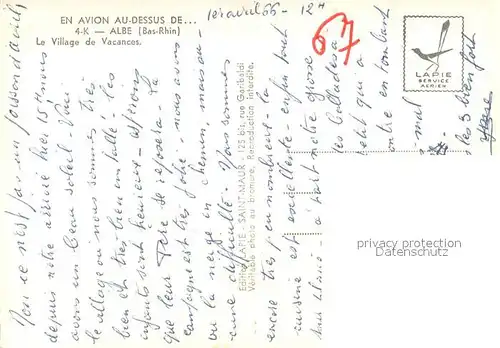 EN AVION AU-DESSUS DE...
4-K — ALBE (Bas-Rhin)
Le Village de Vacances.
1er avril 66 - 12H
67
LAPIE
SERVICE
AERIEN
Non ce n'est pas un poisson d'avril
depuis notre arrivée hier 15H nous
avons un beau soleil. Voici
le village où nous sommes très
bien et très bien installé les
enfants sont heureux - espérons
que leur Père se reposera - La
campagne est très jolie - nous avons
vu la neige en chemin, mais
une . Nous sommes
encore très peu nombreux - la
cuisine est excellente - enfin tout
à part notre grosse
les ballades a
petit qui a
en tombant
mal
les 3 bien fort
Editions LAPIE - SAINT-MAUR - 125 bis, rue Garibaldi
Véritable photo au bromure, Reproduction interdite.
privacy protection
Datenschutz